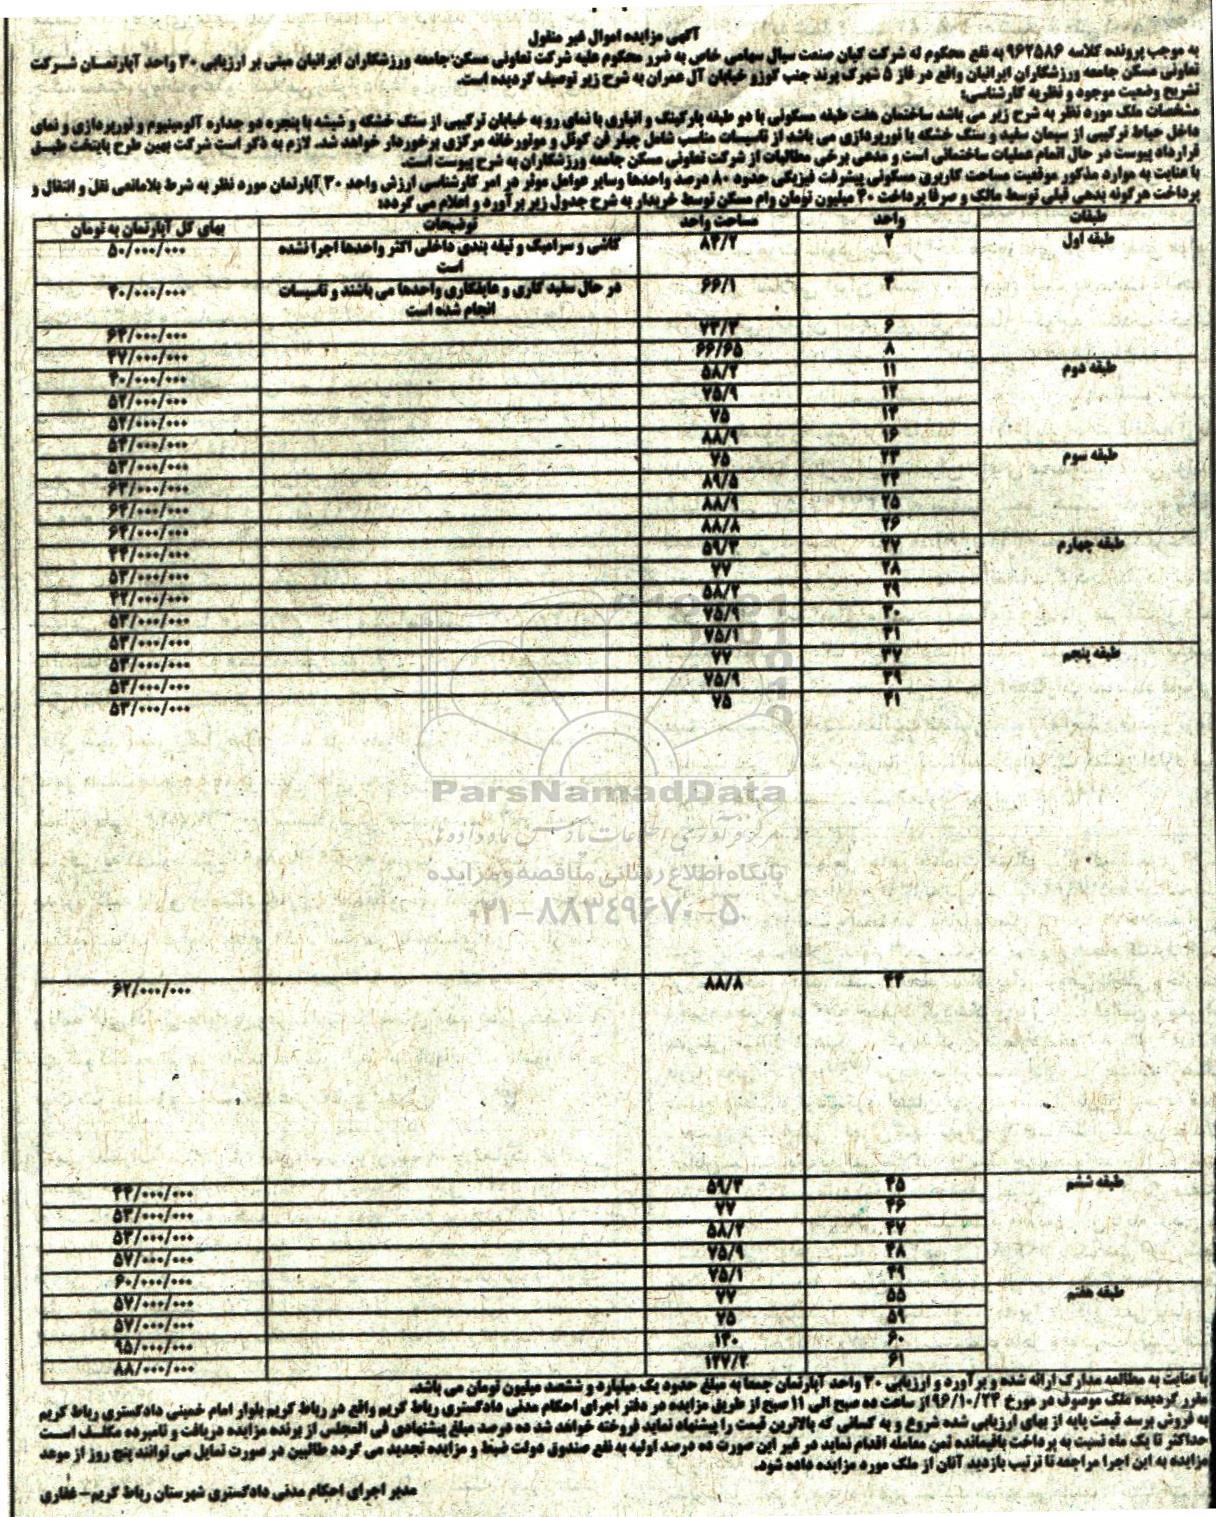 آگهی مزایده اموال غیر منقول
به موجب پرونده کلاسه ۹۶۲۵۸۶ به نفع محکوم له شرکت کیان صنعت سیال سهامی خاص به ضرر محکوم علیه شرکت تعاونی مسکن جامعه ورزشکاران ایرانیان مبنی بر ارزیابی ۳۰ واحد آپارتمان شرکت
تعاونی مسکن جامعه ورزشکاران ایرانیان واقع در فاز ۵ شهرک پرند جنب کوزو خیابان آل عمران به شرح زیر توصیف گردیده است.
تشریح وضعیت موجود و نظریه کارشناسی:
مشخصات ملک مورد نظر به شرح زیر می باشد ساختمان هفت طبقه مسکونی با دو طبقه پارکینگ و انباری با نمای رو به خیابان ترکیبی از سنگ خشکه و شیشه با پنجره دو جداره آلومینیوم و نورپردازی و نمای
داخل حیاط ترکیبی از سیمان سفید و سنگ خشکه با نورپردازی می باشد از تاسیسات مناسب شامل چیلر فن کوئل و موتورخانه مرکزی برخوردار خواهد شد. لازم به ذکر است شرکت بهین طرح پایتخت طبق
قرارداد پیوست در حال اتمام عملیات ساختمانی است و مدعی برخی مطالبات از شرکت تعاونی مسکن جامعه ورزشکاران به شرح پیوست است.
با عنایت به موارد مذکور موقعیت مساحت کاربری مسکونی پیشرفت فیزیکی حدود ۸۰ درصد واحدها وسایر عوامل موثر در امر کارشناسی ارزش واحد ۳۰ آپارتمان مورد نظر به شرط بلامانعی نقل و انتقال و
پرداخت هرگونه بدهی قبلی توسط مالک و صرفا پرداخت ۴۰ میلیون تومان وام مسکن توسط خریدار به شرح جدول زیر برآورد و اعلام می گردد:
طبقات واحد مساحت واحد توضیحات بهای کل آپارتمان به تومان
طبقه اول ۲ ۸۴/۲ کاشی و سرامیک و تیغه بندی داخلی اکثر واحدها اجرا نشده ۵۰/۰۰۰/۰۰۰
است
۴ ۶۶/۱ در حال سفید کاری و عایقکاری واحدها می باشند و تاسیسات ۴۰/۰۰۰/۰۰۰
انجام شده است
۶ ۷۴/۳ ۶۴/۰۰۰/۰۰۰
۸ ۶۶/۶۵ ۴۷/۰۰۰/۰۰۰
طبقه دوم ۱۱ ۵۸/۲ ۴۰/۰۰۰/۰۰۰
۱۲ ۷۵/۹ ۵۲/۰۰۰/۰۰۰
۱۴ ۷۵ ۵۲/۰۰۰/۰۰۰
۱۶ ۸۸/۹ ۵۳/۰۰۰/۰۰۰
طبقه سوم ۲۳ ۷۵ ۵۳/۰۰۰/۰۰۰
۲۴ ۸۹/۵ ۶۳/۰۰۰/۰۰۰
۲۵ ۸۸/۹ ۶۲/۰۰۰/۰۰۰
۲۶ ۸۸/۸ ۶۲/۰۰۰/۰۰۰
طبقه چهارم ۲۷ ۵۹/۳ ۴۴/۰۰۰/۰۰۰
۲۸ ۷۷ ۵۳/۰۰۰/۰۰۰
۲۹ ۵۸/۲ ۴۲/۰۰۰/۰۰۰
۳۰ ۷۵/۹ ۵۳/۰۰۰/۰۰۰
۳۱ ۷۵/۱ ۵۳/۰۰۰/۰۰۰
طبقه پنجم ۳۷ ۷۷ ۵۳/۰۰۰/۰۰۰
۳۹ ۷۵/۹ ۵۳/۰۰۰/۰۰۰
۴۱ ۷۵ ۵۳/۰۰۰/۰۰۰
ParsNamadData
مرکز فرآوری اطلاعات پارس نماد داده ها
پایگاه اطلاع رسانی مناقصه و مزایده
۰۲۱-۸۸۳۴۹۶۷۰-۵
۴۴ ۸۸/۸ ۶۲/۰۰۰/۰۰۰
طبقه ششم ۴۵ ۵۹/۳ ۴۴/۰۰۰/۰۰۰
۴۶ ۷۷ ۵۳/۰۰۰/۰۰۰
۴۷ ۵۸/۲ ۵۳/۰۰۰/۰۰۰
۴۸ ۷۵/۹ ۵۷/۰۰۰/۰۰۰
۴۹ ۷۵/۱ ۶۰/۰۰۰/۰۰۰
طبقه هفتم ۵۵ ۷۷ ۵۷/۰۰۰/۰۰۰
۵۹ ۷۵ ۵۷/۰۰۰/۰۰۰
۶۰ ۱۳۰ ۹۵/۰۰۰/۰۰۰
۶۱ ۱۲۷/۲ ۸۸/۰۰۰/۰۰۰
با عنایت به مطالعه مدارک ارائه شده و برآورد و ارزیابی ۳۰ واحد آپارتمان جمعا به مبلغ حدود یک میلیارد و ششصد میلیون تومان می باشد.
مقرر گردیده ملک موصوف در مورخ ۹۶/۱۰/۲۴ از ساعت ده صبح الی ۱۱ صبح از طریق مزایده در دفتر اجرای احکام مدنی دادگستری رباط کریم واقع در رباط کریم بلوار امام خمینی دادگستری رباط کریم
به فروش برسد قیمت پایه از بهای ارزیابی شده شروع و به کسانی که بالاترین قیمت را پیشنهاد نماید فروخته خواهد شد ده درصد مبلغ پیشنهادی فی المجلس از برنده مزایده دریافت و نامبرده مکلف است
حداکثر تا یک ماه نسبت به پرداخت باقیمانده ثمن معامله اقدام نماید در غیر این صورت ده درصد اولیه به نفع صندوق دولت ضبط و مزایده تجدید می گردد طالبین در صورت تمایل می توانند پنج روز از موعد
مزایده به این اجرا مراجعه تا ترتیب بازدید آنان از ملک مورد مزایده داده شود.
مدیر اجرای احکام مدنی دادگستری شهرستان رباط کریم - غفاری